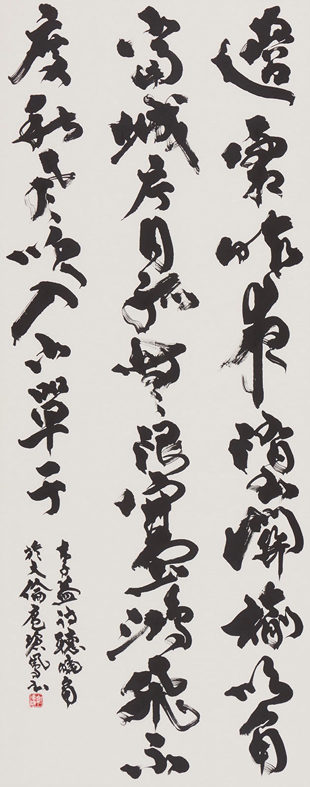 邊霜昨夜墮關榆吹角
當城片月孤無限塞鴻飛不
度秋風吹入小單于
李益詩聽曉角